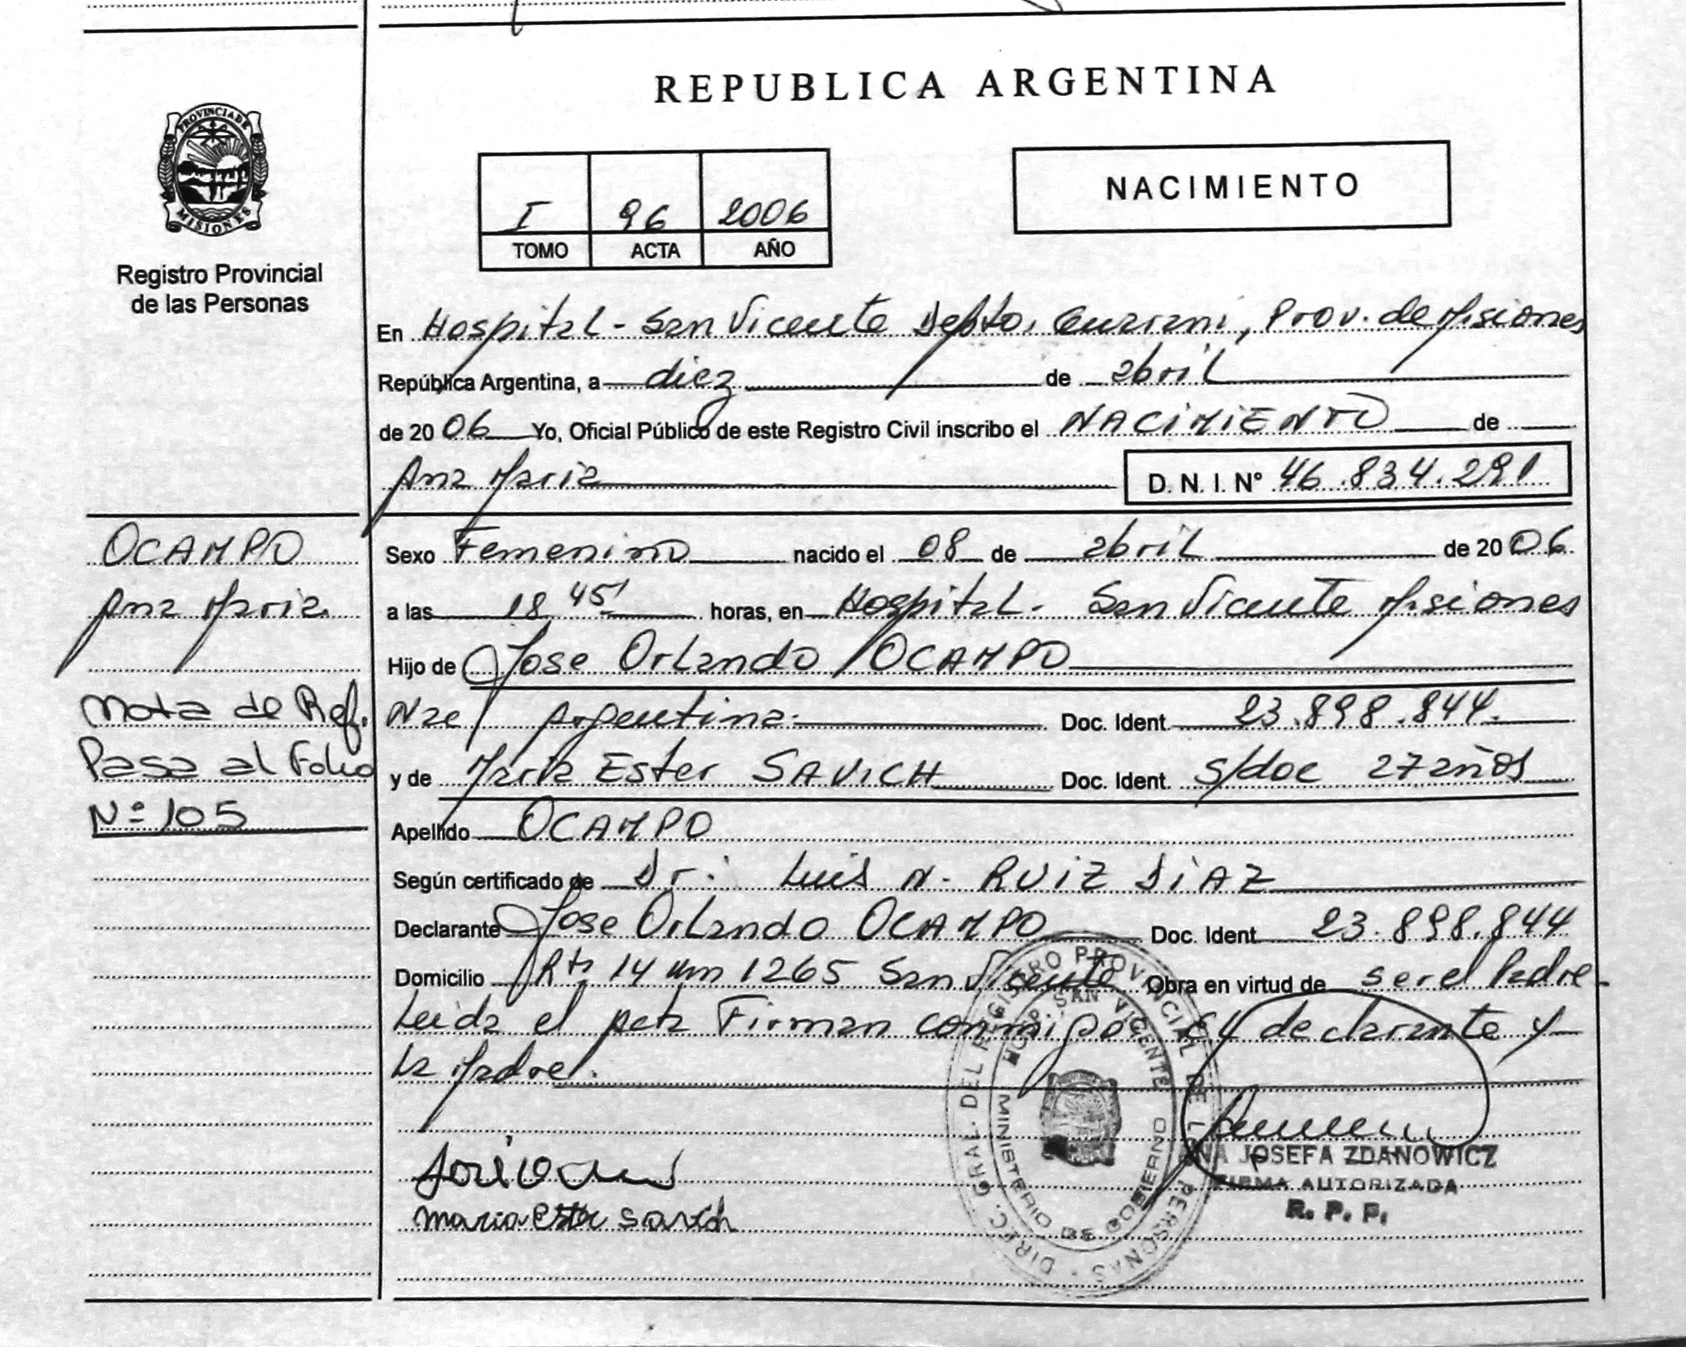 REPUBLICA ARGENTINA
PROVINCIA DE
MISIONES
Registro Provincial
de las Personas
I 96 2006
TOMO ACTA AÑO
NACIMIENTO
En Hospital - San Vicente Depto. Guarani, Prov. de Misiones
República Argentina, a diez de abril
de 2006 Yo, Oficial Público de este Registro Civil inscribo el NACIMIENTO de
Ana Maria D. N. I. N° 46.834.291
OCAMPO
Ana Maria
Nota de Ref.
Pasa al Folio
Nº 105
Sexo Femenino nacido el 08 de abril de 2006
a las 18 45' horas, en Hospital - San Vicente Misiones
Hijo de Jose Orlando OCAMPO
Nac Argentina. Doc. Ident. 23.898.844.
y de Maria Ester SAVICH Doc. Ident. S/doc 27 años
Apellido OCAMPO
Según certificado de Dr: Luis N. RUIZ DIAZ
Declarante Jose Orlando OCAMPO Doc. Ident. 23.898.844
Domicilio Rta 14 km 1265 San Vicente Obra en virtud de ser el Padre
Leida el acta Firman conmigo el declarante y
la Madre.
Maria Ester Savich
DIREC. GRAL. DEL REGISTRO PROVINCIAL DE LAS PERSONAS
HOSP. SAN VICENTE
MINISTERIO DE GOBIERNO
ANA JOSEFA ZDANOWICZ
FIRMA AUTORIZADA
R. P. P.